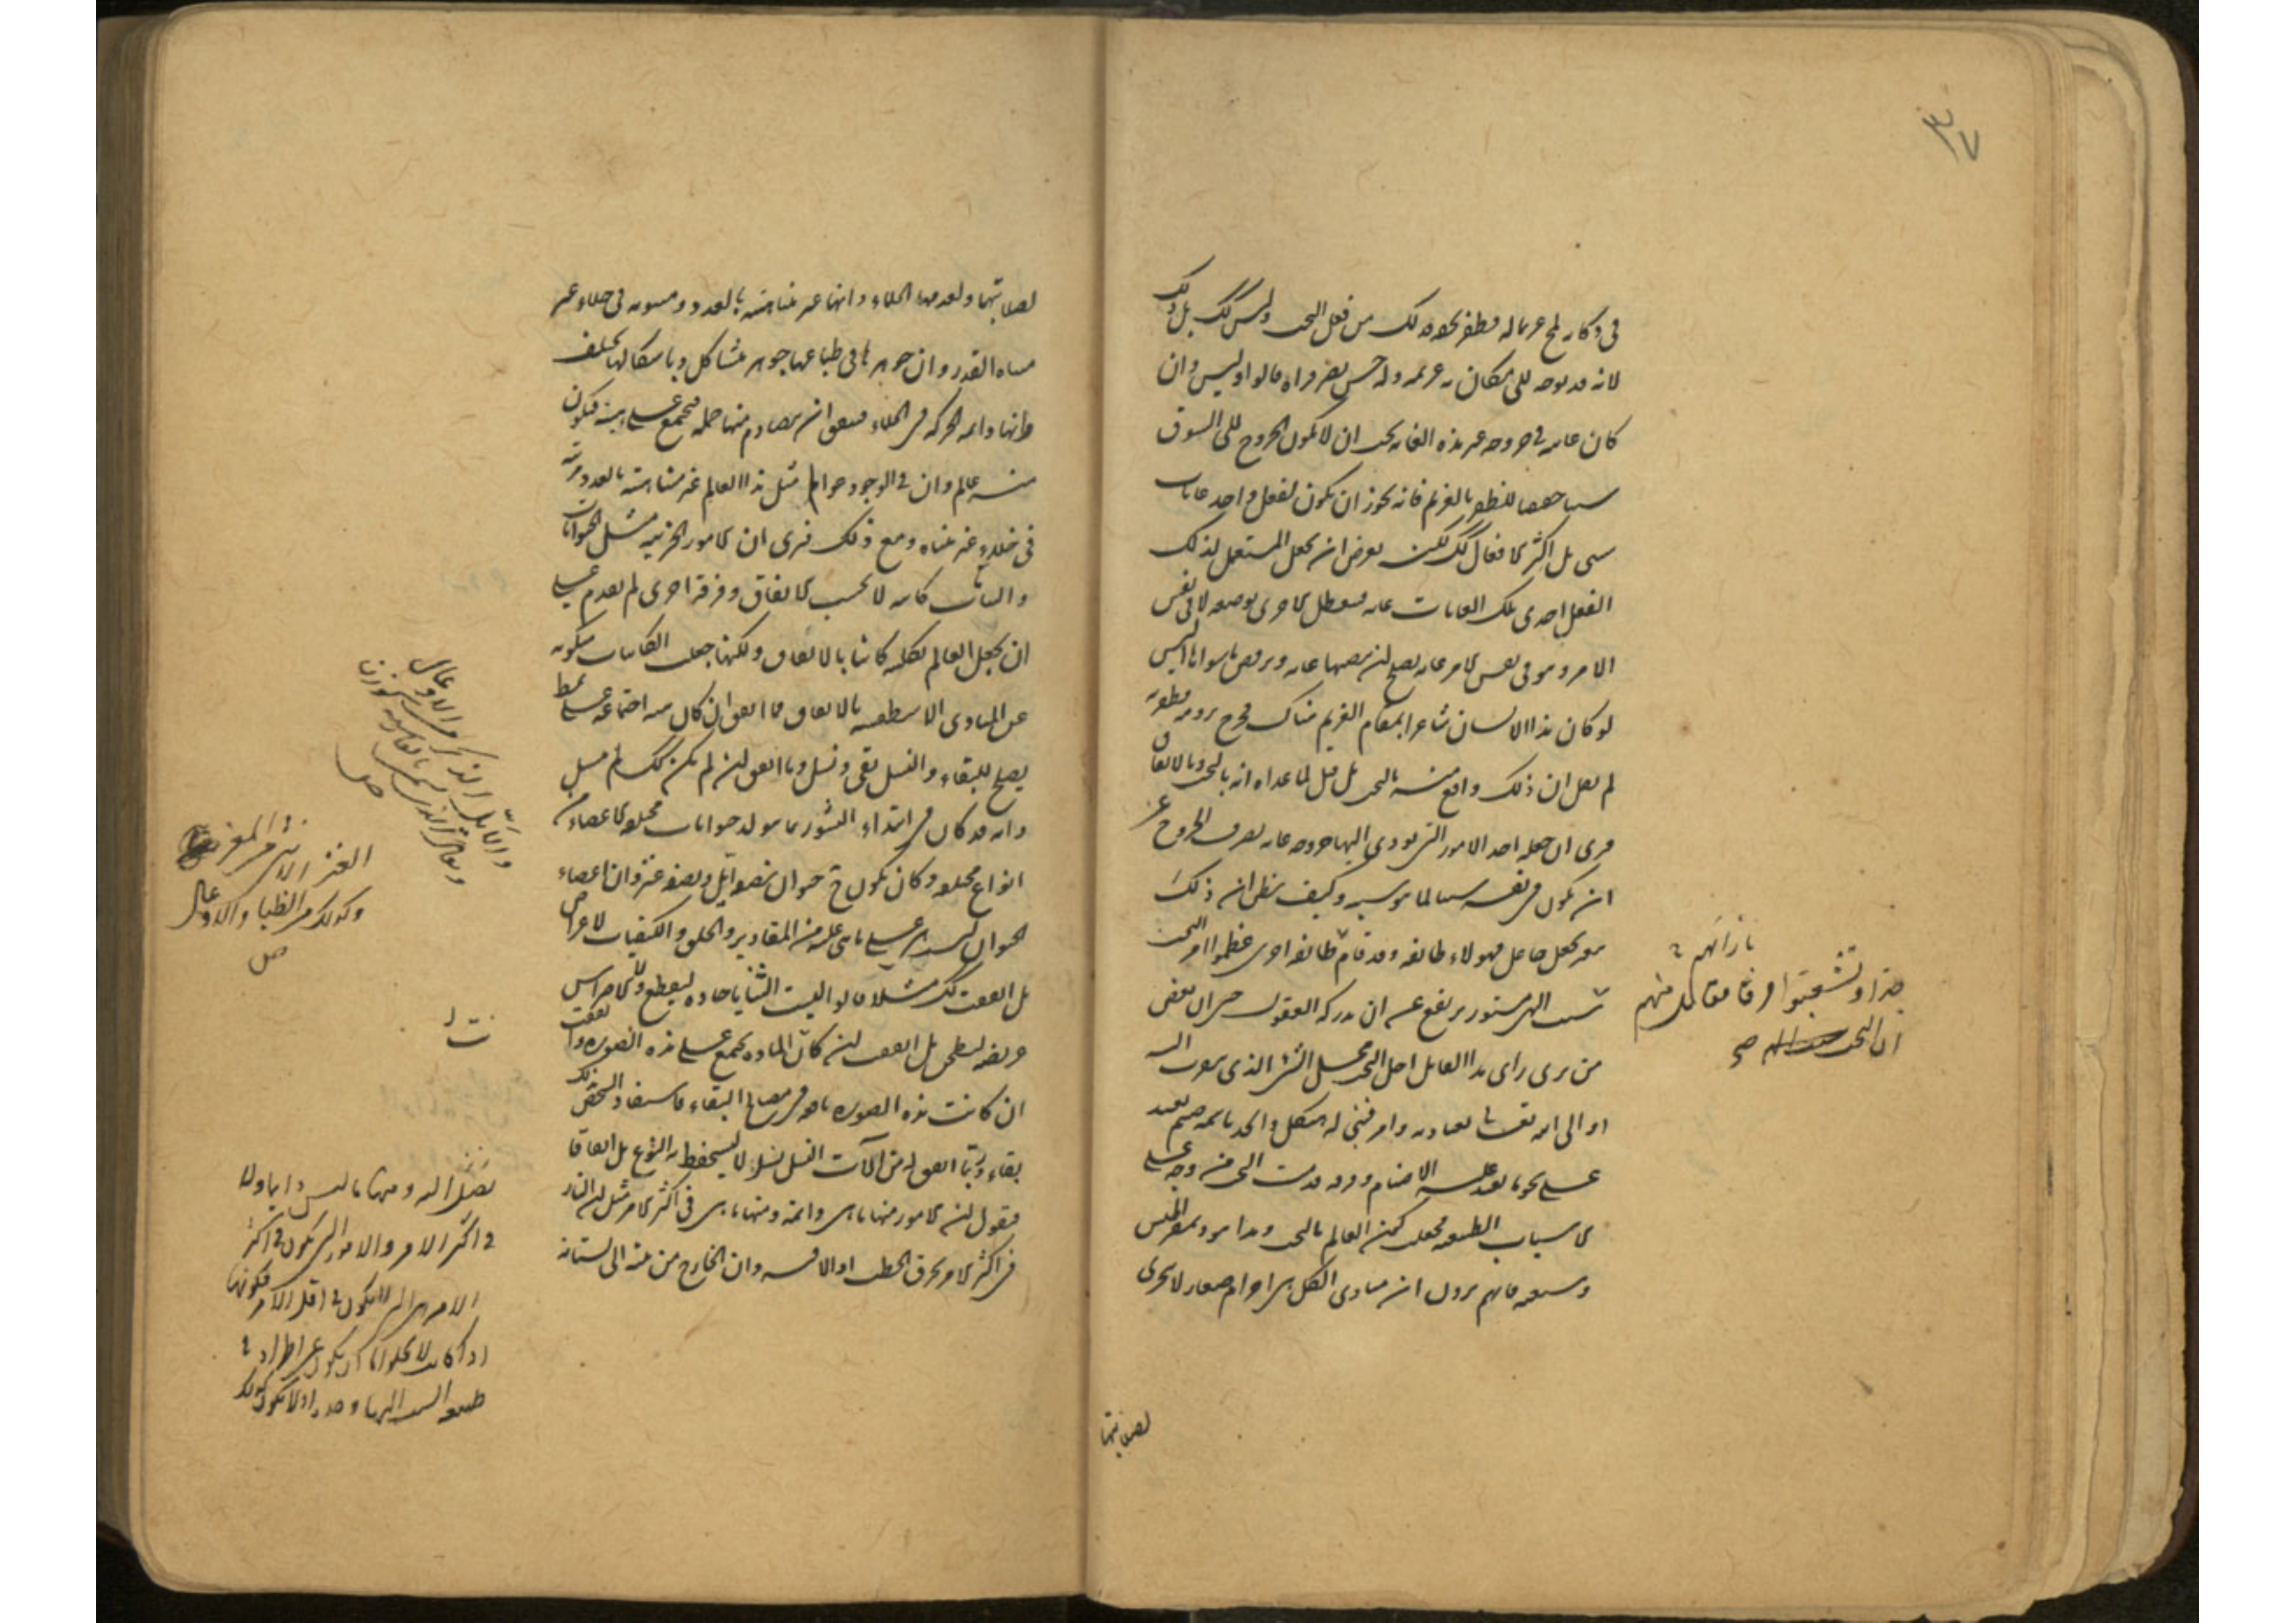 ٣٧
في دكانه لمح غريما له فظفر بحقه فذلك من فعل البخت وليس كذلك بل ذلك
لانه قد توجه الى مكان به غريمه وله حس بصر فراه قالوا وليس وان
كان غايته في خروجه غير هذه الغاية يجب ان لا يكون الخروج الى السوق
سببا حقيقيا للظفر بالغريم فانه يجوز ان يكون لفعل واحد غايات
شتى بل اكثر الافعال كذلك لكنه يعرض ان يجعل المستعمل لذلك
الفعل احدى تلك الغايات غاية فيتعطل الاخرى بوضعه لا في نفس
الامر وهو في نفس الامر غاية يصلح ان ينصبها غاية ويرفض ما سواها اليس
لو كان هذا الانسان شاعرا بمقام الغريم هناك فخرج يرومه فظفر به
لم يقل ان ذلك واقع منه بالبخت بل قيل لما عداه انه بالبخت وبالاتفاق
فترى ان جعله احد الامور التي يودي اليها خروجه غاية يصرف الخروج عن
ان يكون في نفسه سببا لما هو سببه وكيف يظن ان ذلك
يتغير بجعل جاعل فهولاء طائفة وقد قام طائفة اخرى عظموا امر البخت
بازائهم
جدا وتشعبوا فرقا فقال قائل منهم
ان البخت صح
سبب الهي مستور يرتفع عن ان يدركه العقول حتى ان بعض
من يرى راى هذا القايل احل البخت محل الشي الذي يتقرب اليه
او الى الله تعالى بعبادته وامر فبني له هيكل واتخذ باسمه صنم يعبد
على نحو ما يعبد عليه الاصنام وفرقة قدمت البخت من وجه على
الاسباب الطبيعية فجعلت كون العالم بالبخت وهذا هو ديمقراطيس
وشيعته فانهم يرون ان مبادى الكل هى اجرام صغار لا تتجزى
لصلابتها
لصلابتها ولعدمها الخلاء وانها غير متناهية بالعدد ومبثوثة في خلاء غير
متناه القدر وان جوهرها في طباعها جوهر متشاكل وباشكالها يختلف
وانها دائمة الحركة في الخلاء فيتفق ان يتصادم منها جملة فيجتمع على هيئة فيكون
منه عالم وان في الوجود عوالم مثل هذا العالم غير متناهية بالعدد مرتبة
في خلاء غير متناه ومع ذلك فيرى ان الامور الجزئية مثل الحيوانات
والنباتات كائنة لا بحسب الاتفاق وفرقة اخرى لم يقدم على
ان يجعل العالم بكليته كائنا بالاتفاق ولكنها جعلت الكائنات متكونة
عن المبادى الاسطقسية بالاتفاق فما اتفق ان كان هيئة اجتماعه على نمط
يصلح للبقاء والنسل بقى ونسل وما اتفق ان لم يكن كذلك لم ينسل
وانه قد كان في ابتداء النشو ربما يتولد حيوانات مختلطة الاعضاء من
انواع مختلفة وكان يكون حيوان نصفه ايل ونصفه عنز وان اعضاء
الحيوان ليست هي على ما هي عليه من المقادير والخلق والكيفيات لاغراض
بل اتفقت كذلك مثلا قالوا ليست الثنايا حادة ليقطع ولا الاضراس
عريضة ليطحن بل اتفقت ان كانت المادة يجتمع على هذه الصورة واتفقت
ان كانت هذه الصورة نافعة في مصالح البقاء فاستفاد الشخص بذلك
بقاء وربما اتفق له من الآت النسل نسل لا ليستحفظ به النوع بل اتفاقا
فنقول ان الامور منها ما هي دائمة ومنها ما هي في اكثر الامر مثل ان النار
في اكثر الامر يحرق الحطب اذا لاقته وان الخارج من بيته الى بستانه
والايل
العنز الانثى من المعز
وكذلك من الظباء والاوعال
صل
يصل اليه ومنها ما ليس دايما ولا
في اكثر الامر والامور التي يكون في اكثر
الامر هي التي لا يكون في اقل الامر فكونها
اذا كانت لا يخلو اما ان يكون عن اطراد في
طبيعة السبب اليها وحده او لا يكون كذلك